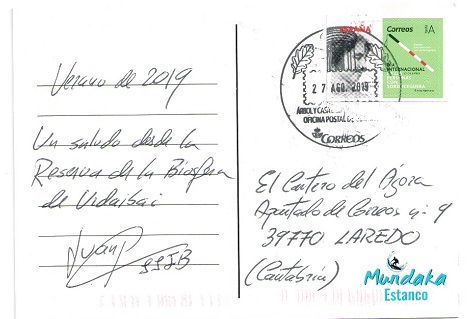 Verano de 2019
Un saludo desde la
Reserva de la Biosfera
de Urdaibai
ESPAÑA
Correos
A
INTERNACIONAL
PERSONAS
CON
SORDOCEGUERA
27 AGO. 2019
ÁRBOL Y CASA
OFICINA POSTAL DE
CORREOS
El Cartero del Ágora
Apartado de Correos nº 9
39770 LAREDO
(Cantabria)
Mundaka
Estanco